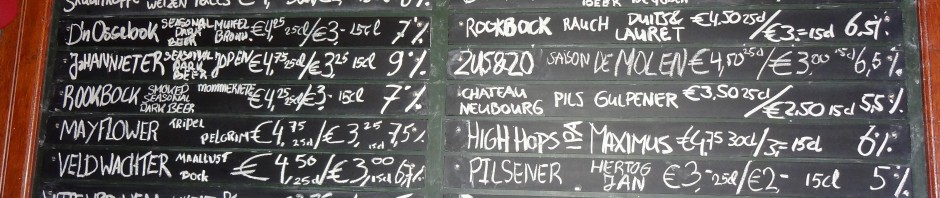 D'n Ossebok SEASONAL DARK BEER MUIFEL BROUW. €4,25 25cl/€3- 15cl 7%
JoHANNIETER SEASONAL DARK BEER JOPEN €4,75 25cl/€3,25 15cl 9%
ROOKBOCK SMOKED SEASONAL DARK BEER MOMMERIETE €4,25 25cl/€3- 15cl 7%
MAYFLOWER TRIPEL PELGRIM €4,75 25cl/€3,25 15cl 7,5%
VELDWACHTER MAALLUST Bock €4,50 25cl/€3,00 15cl 6,5%
ROOKBOCK RAUCH DUITS& LAURET €4,50 25cl/€3,= 15cl 6,5%
ZUS&ZO SAISON DE MOLEN €4,50 25cl/€3,00 15cl 6,5%
CHATEAU NEUBOURG PILS GULPENER €3,50 25cl/€2,50 15cl 5,5%
HIGH HOPS IPA MAXIMUS €4,75 30cl/3,= 15cl 6%
PILSENER HERTOG JAN €3,- 25cl/€2- 15cl 5%